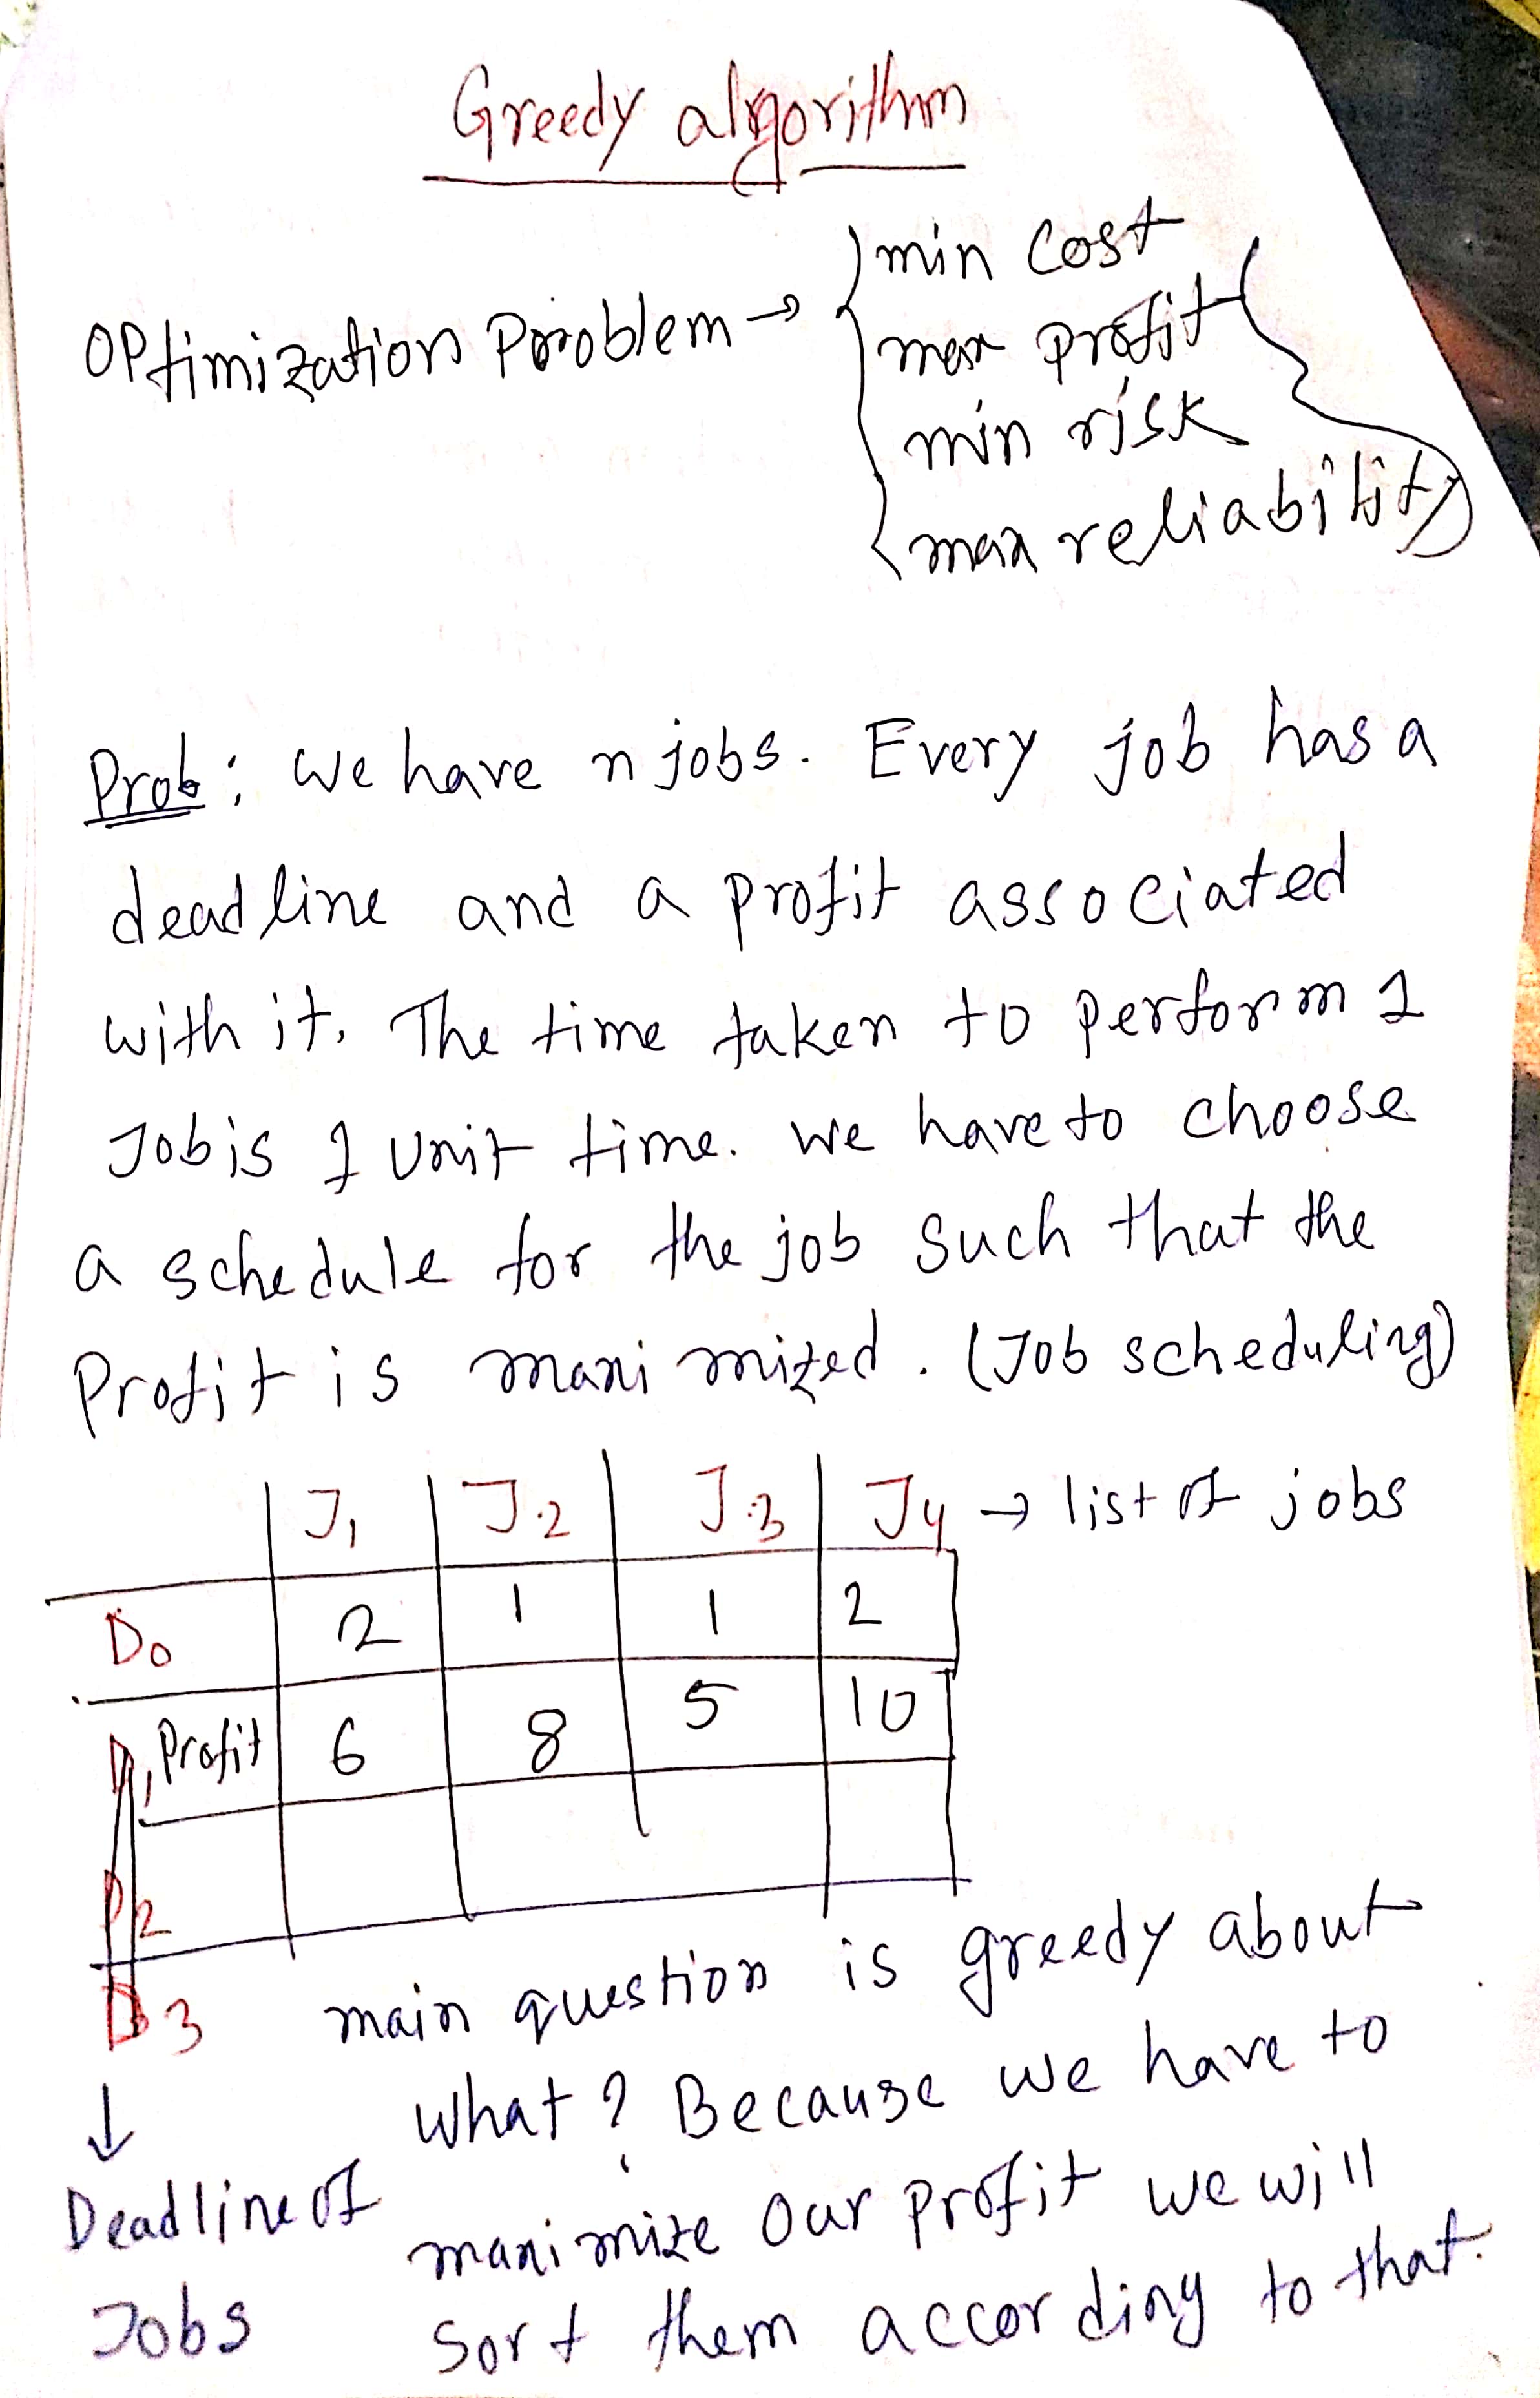 Greedy algorithm
Optimization Problem → { min cost
max profit
min risk
max reliability
Prob: We have n jobs. Every job has a
deadline and a profit associated
with it. The time taken to perform 1
Job is 1 unit time. We have to choose
a schedule for the job such that the
Profit is maximized. (Job scheduling)
J1 J2 J3 J4 → list of jobs
D0 2 1 1 2
D1 Profit 6 8 5 10
D2
D3
↓
Deadline of
Jobs
main question is greedy about
what? Because we have to
maximize our profit we will
sort them according to that.